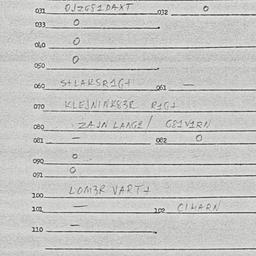 031 OJZGSIDAXT 032 O
033 O
040 O
050 O
060 S+LAKSR1G+ 061 —
070 KLEJNINK83R R1G+
080 ZAJN LANGE/ G81V1RN
081 — 082 O
090 O
091 O
100 LOM3R VART+
101 — 102 CIHARN
110 —